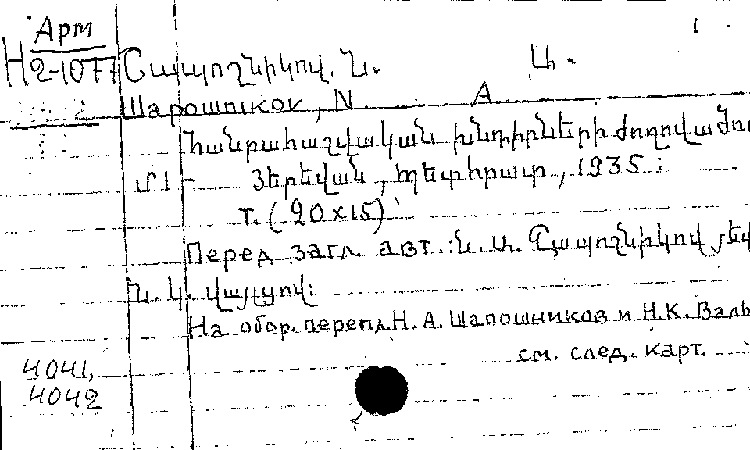 Арт
Н2-1077 Շապոշնիկով, Ն. Ա.
Шапошников, N A
Հանրահաշվական խնդիրների ժողովածու
մ 1 - Յերեվան, Պետհրատ, 1935:
т. (20x15)
Перед загл. авт: Ն. Ա. Շապոշնիկով յեվ
Ն. Կ. Վալցով:
На обор. перепл. Н. А. Шапошников и Н. К. Валь
см. след. карт.
4041,
4042